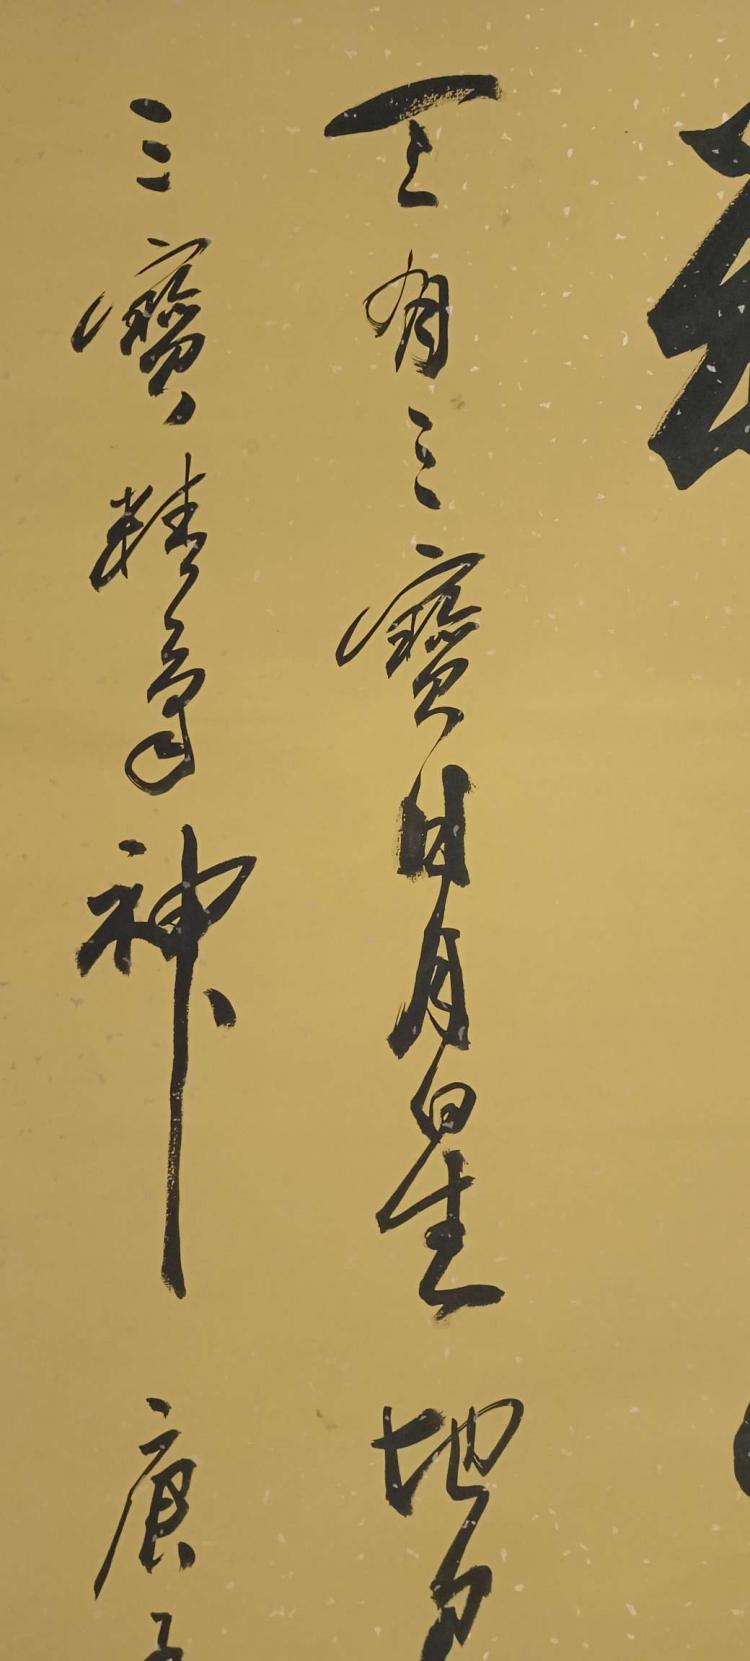 天有三寶日月星地有
三寶精氣神庚子